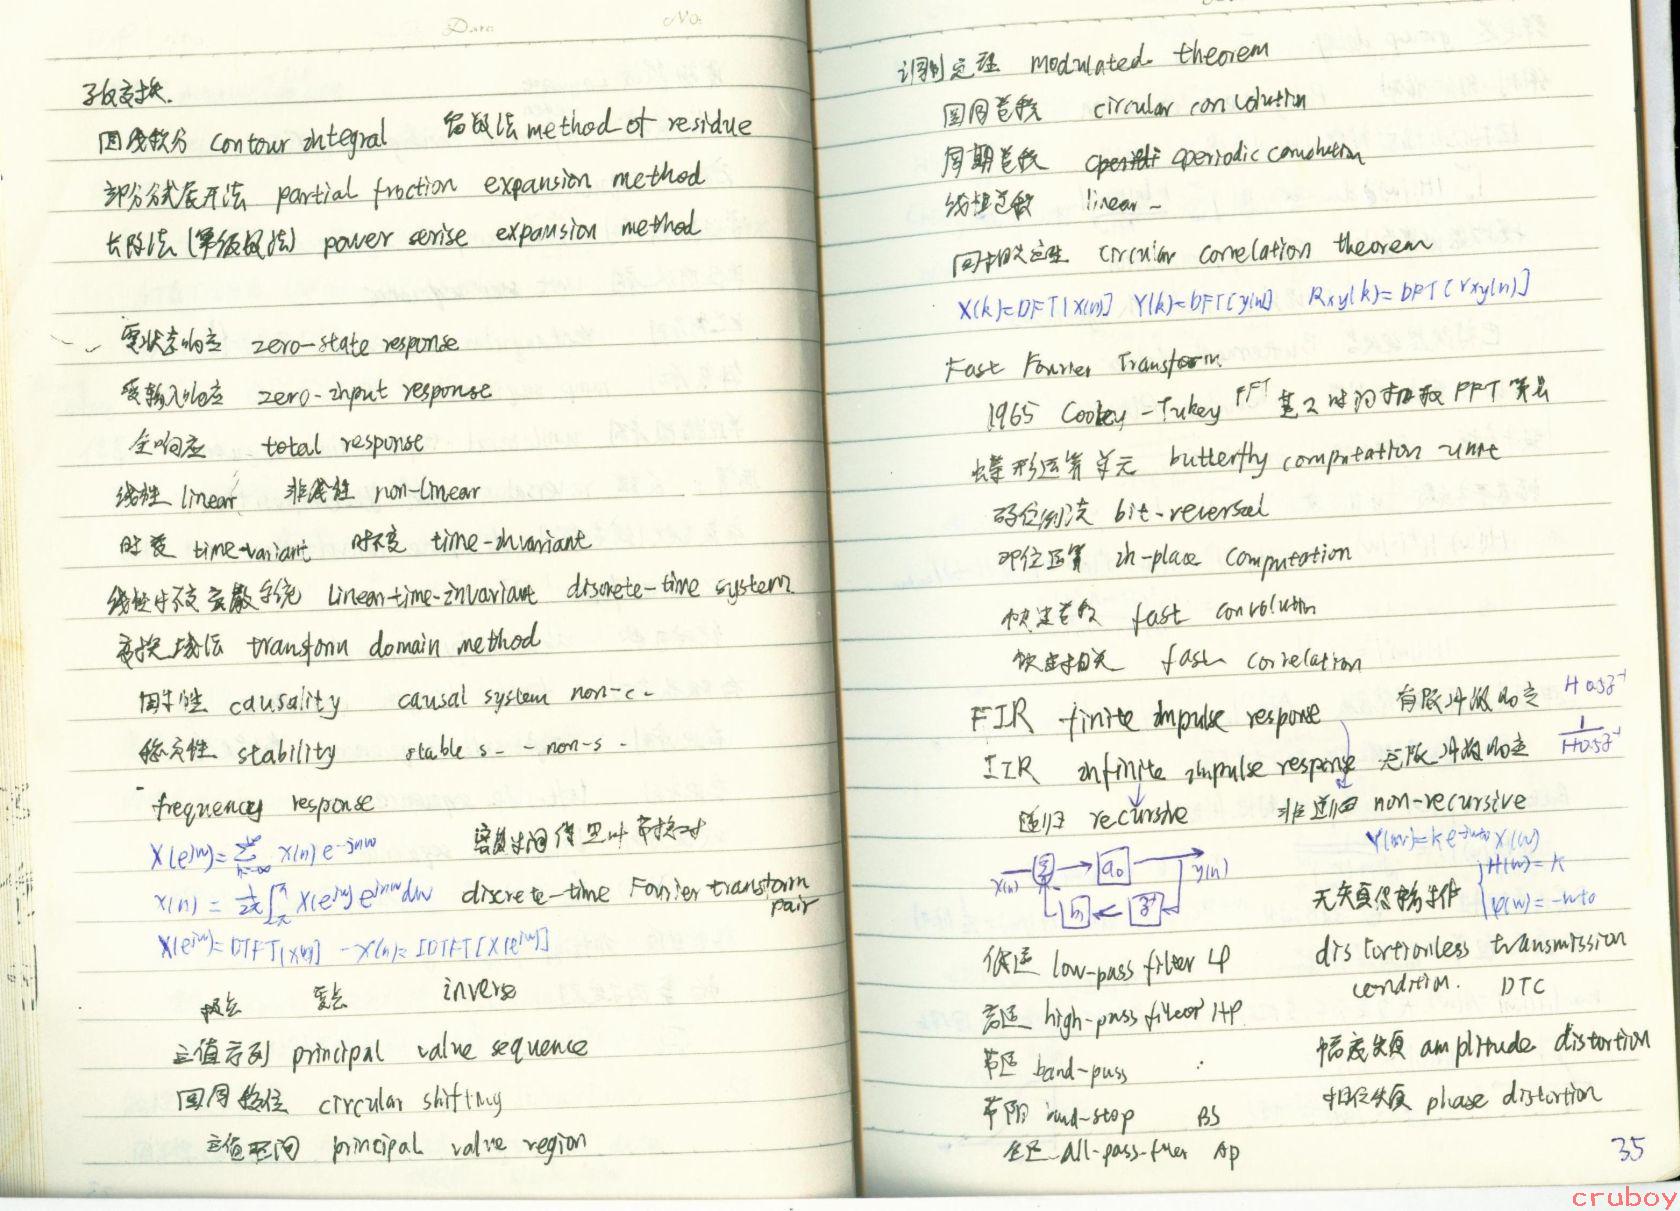 Date No:
围线积分 contour integral 留数法 method of residue
部分分式展开法 partial fraction expansion method
长除法(幂级数法) power serise expansion method
零状态响应 zero-state response
零输入响应 zero-input response
全响应 total response
线性 linear 非线性 non-linear
时变 time-variant 时不变 time-invariant
线性时不变离散系统 linear-time-invariant discrete-time system
变换域法 transform domain method
因果性 causality causal system non-c-
稳定性 stability stable s- - non-s-
frequency response
X(e^jω)=∑ x(n)e^-jnω 离散时间傅里叶变换对
x(n) = 1/2π ∫ X(e^jω)e^jnω dω discrete-time Fourier transform
pair
X(e^jω)=DTFT[x(n)] -x(n)=IDTFT[X(e^jω)]
极点 零点 inverse
主值序列 principal value sequence
圆周移位 circular shifting
主值区间 principal value region
调制定理 modulated theorem
圆周卷积 circular convolution
周期卷积 periodic convolution
线性卷积 linear -
圆周相关定理 circular correlation theorem
X(k)=DFT[x(n)] Y(k)=DFT[y(n)] Rxy(k)=DFT[rxy(n)]
Fast Fourier Transform
1965 Cooley-Tukey FFT 基2时间抽取FFT算法
蝶形运算单元 butterfly computation unit
码位倒读 bit-reversal
即位运算 in-place computation
快速卷积 fast convolution
快速相关 fast correlation
FIR finite impulse response 有限冲激响应
IIR infinite impulse response 无限冲激响应
递归 recursive 非递归 non-recursive
Y(w)=Ke^-jwt0 X(w)
x(n) Σ a0 y(n) |H(w)=K
b1 z^-1 无失真传输条件 φ(w)=-wt0
低通 low-pass filter LP distortionless transmission
condition. DTC
高通 high-pass filter HP
带通 band-pass 幅度失真 amplitude distortion
带阻 band-stop BS 相位失真 phase distortion
全通 all-pass-filter AP
35
cruboy